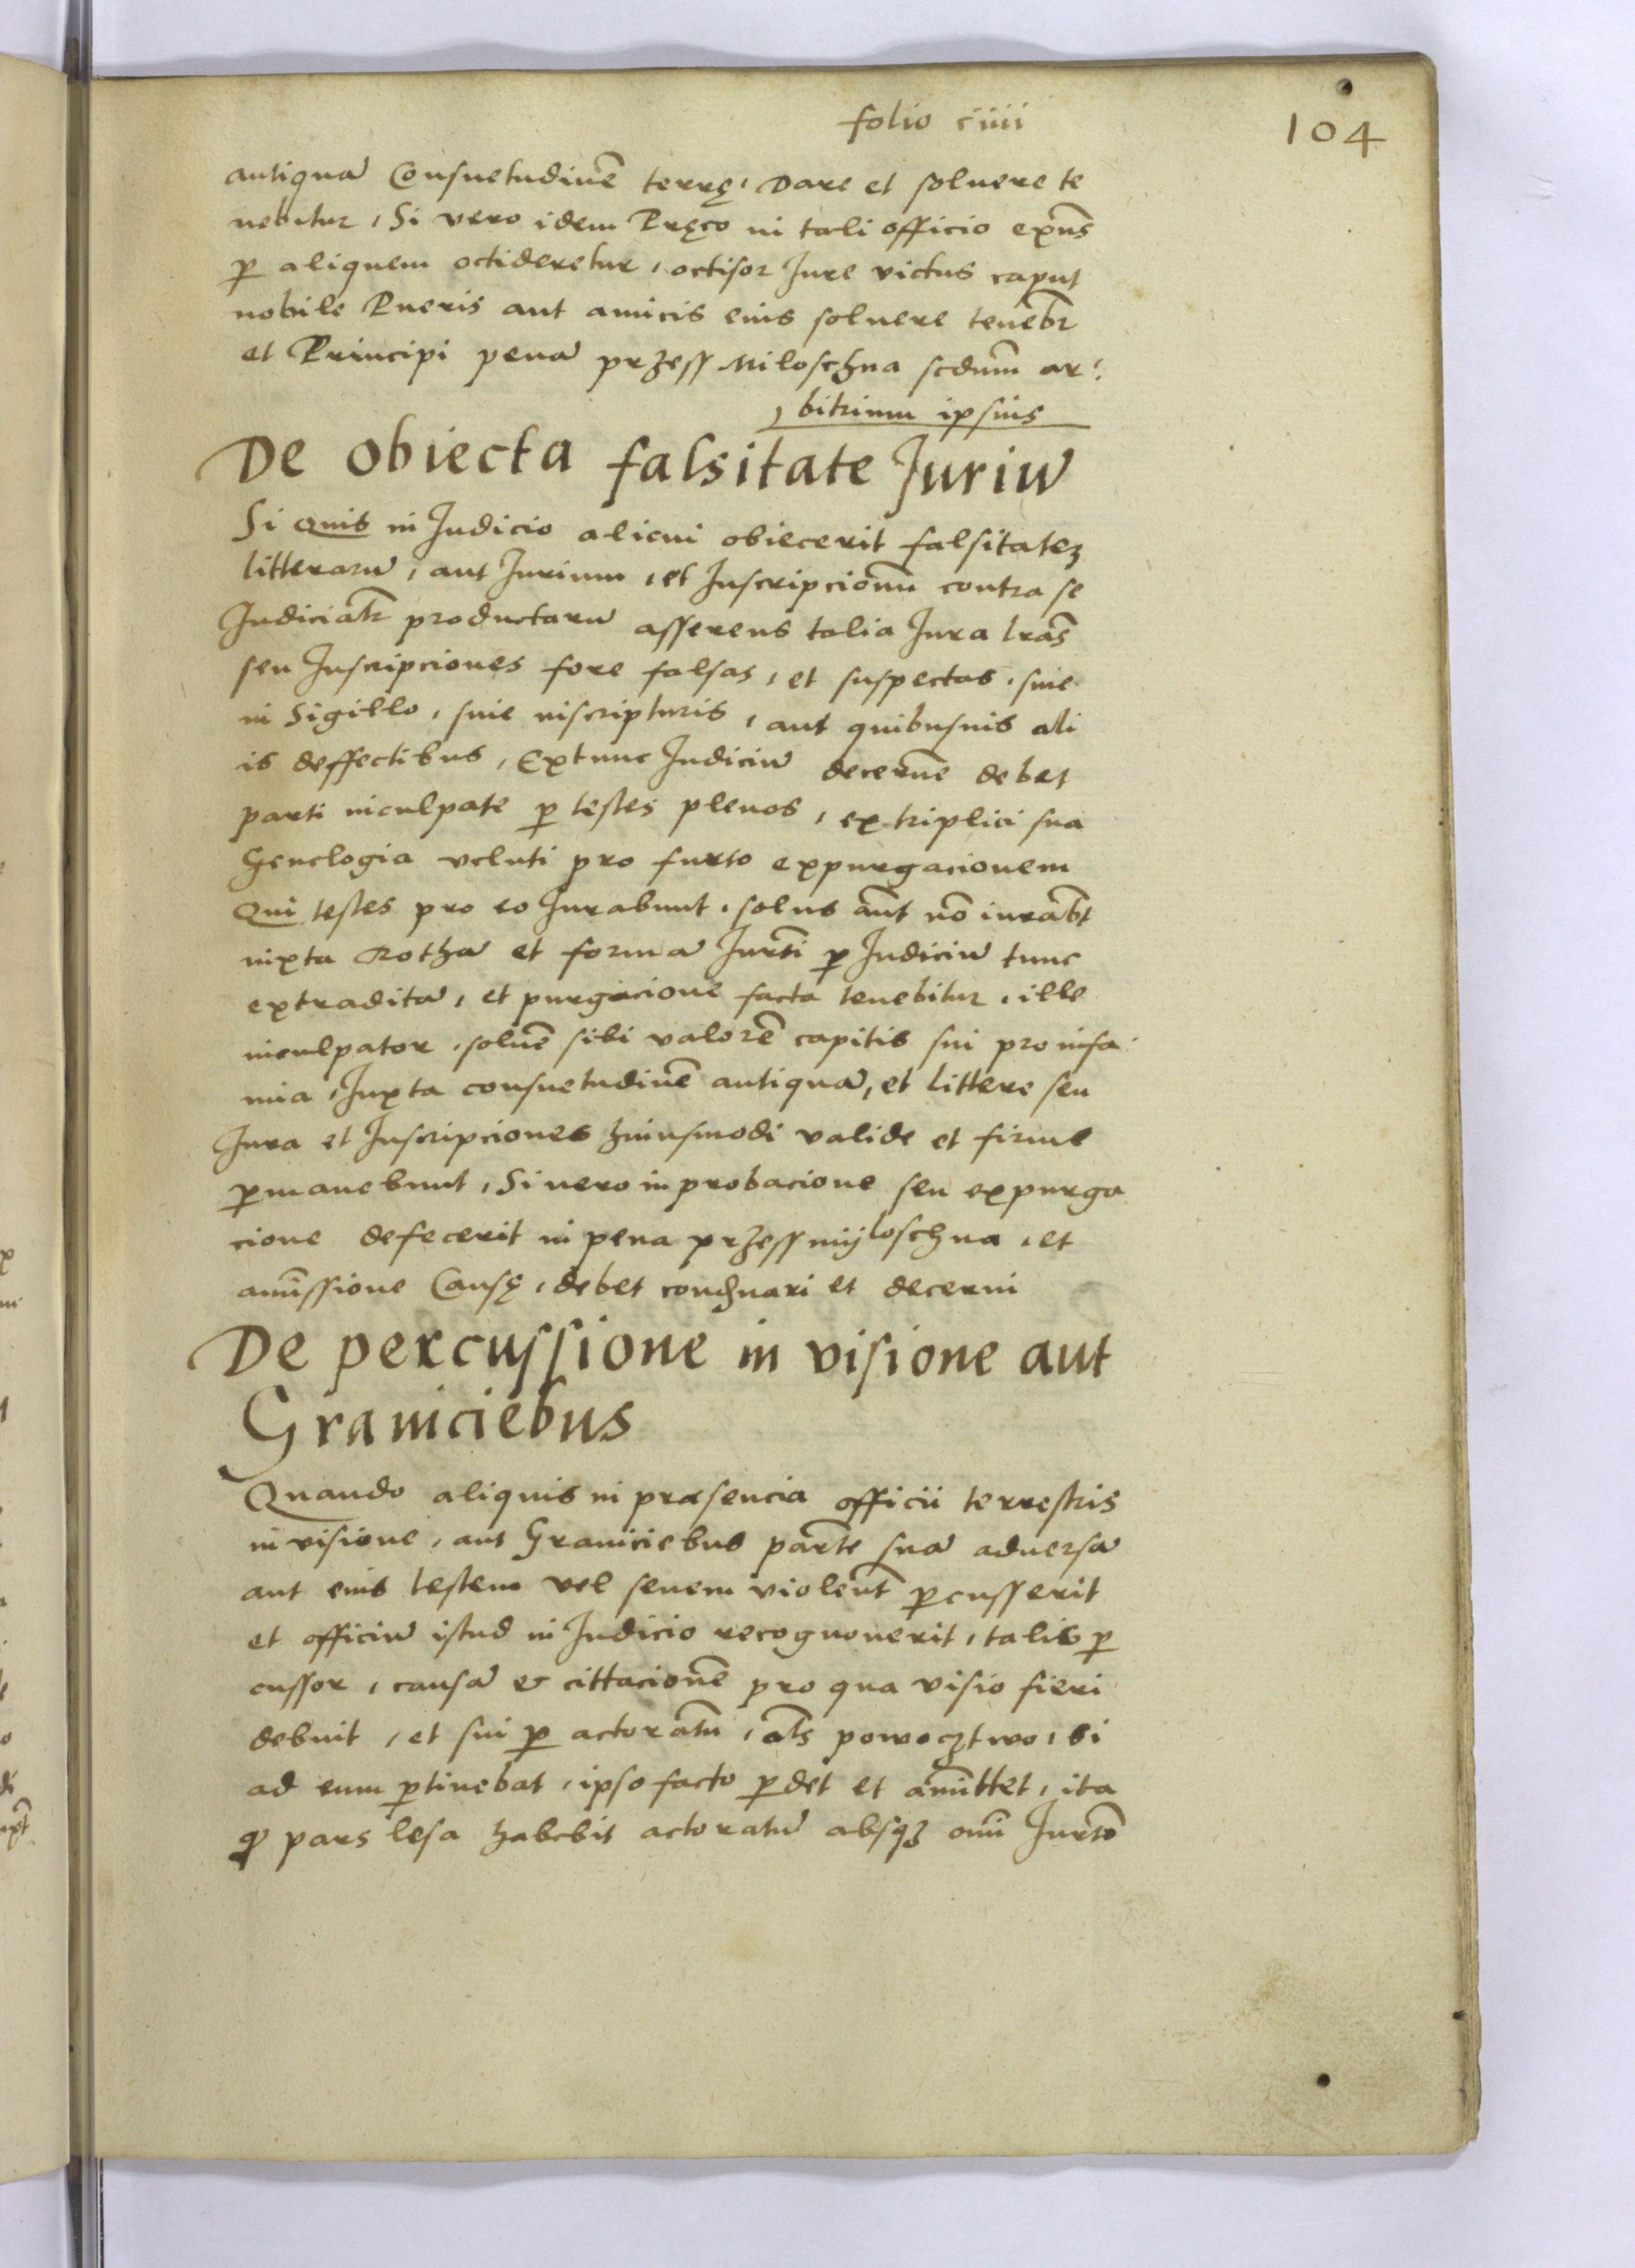 folio ciiii
104
antiquā Consuetudinē terrę, Dare et soluere te
nebitur, Si vero idem Pręco in tali officio exn̄s
ꝑ aliquem occideretur, occisor Jure victus caput
nobile Pueris aut amicis eius soluere teneb̄r
et Principi penā przess Miloschna scdum̄ ar
bitrium ipsius
De obiecta falsitate Juriū
Si quis in Judicio alicui obiecerit falsitateꝫ
litterarū, aut Jurium, et Inscripcionū contra se
Judicialr̄ productarū asserens talia Jura lrās
seu Inscripciones fore falsas, et suspectas, siue
in Sigillo, siue inscripturis, aut quibusuis ali
is deffectibus, Extunc Judiciū decernē debet
parti inculpate ꝑ testes plenos, ex triplici sua
Genelogia veluti pro furto expurgacionem
Qui testes pro eo Jurabunt, solus aūt nō iurabt̄
iuxta Rothā et formā Jurti̅ ꝑ Judiciū tunc
extraditā, et purgacione facta tenebitur, ille
inculpator, soluē sibi valorē capitis sui pro infa
mia, Juxta consuetudinē antiquā, et littere seu
Jura et Inscripciones huiusmodi valide et firme
ꝑmanebunt, Si uero in probacione seu expurga
cione defecerit in pena przess mijloschna, et
amissione Causę, debet condn̄ari et decerni
De percussione in visione aut
Graniciebus
Quando aliquis in præsencia officii terrestris
in visione, aut Graniciebus partē suā aduersā
aut eius testem vel senem violent̄ ꝑcusserit
et officiū istud in Judicio recognouerit, talis ꝑ
cussor, causā & cittacionē pro qua visio fieri
debuit, et sui ꝑ actoratū, als̄ powocztwo, si
ad eum ꝑtinebat, ipso facto ꝑdet et amittet, ita
ꝙ pars lesa habebit actoratū absqꝫ om̄i Jurto̅